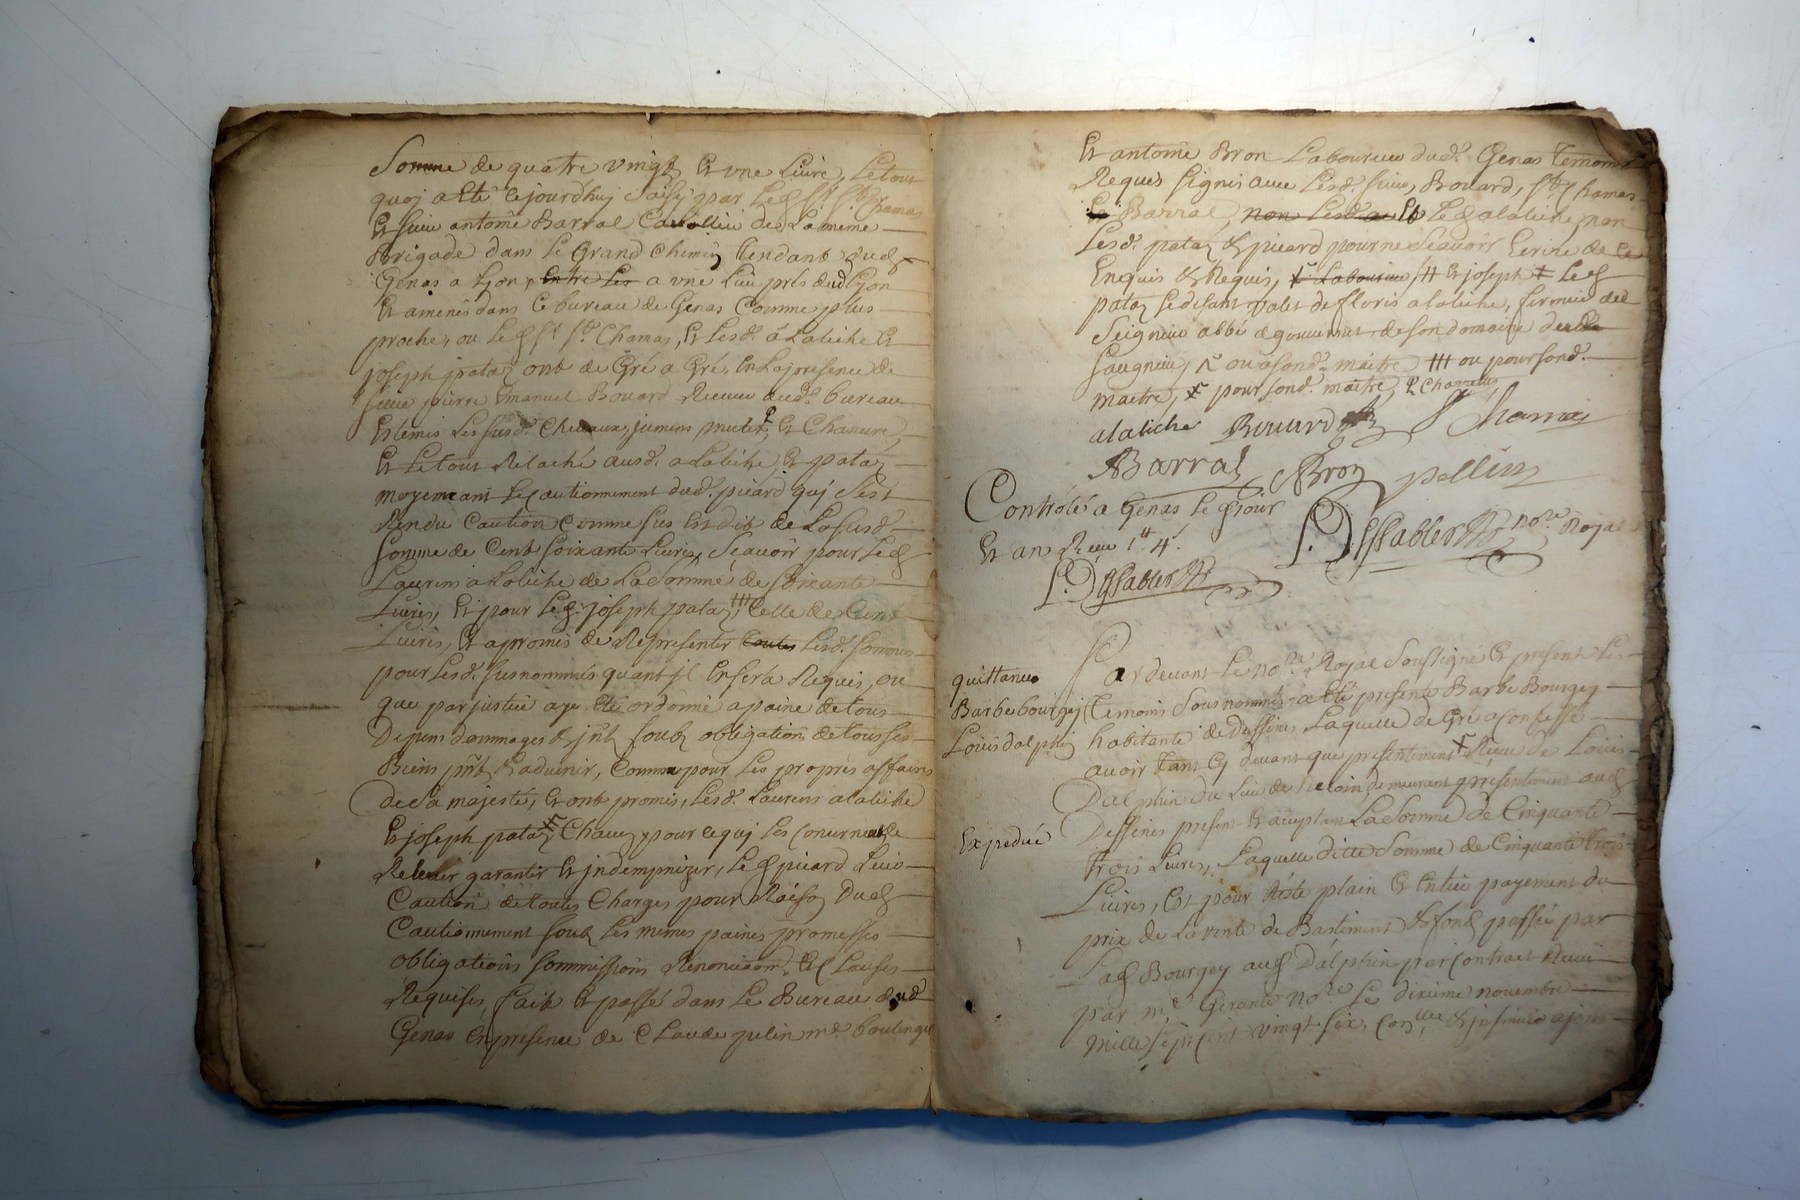 Somme de quatre vingt et une Livre, Le tout
quoj a etté cejourdhuj saisj par Led Sr St Chamas
Et sieur antoine Barral Cavallier de La meme
Brigade dans Le Grand Chemin tendant dud
Genas a Lyon, entre Les a une Lieu prés dud Lyon
Et amenés dans Ce bureau de Genas Comme plus
proche, ou Led Sr St Chamas, Et Lesd. alatiche Et
joseph pataz ont de Gré a Gré, En La presence de
sieur pierre Emanuel Bouard Receveur dud. bureau
Estemés Les susd. Chevaux, jument, mulet, Et Chanvre,
Et Le tout Relaché ausd. alatiche, Et pataz
moyennant Le Cautionnement dud. picard quj s'est
Rendu Caution Comme sus est dit de La susd.
somme de Cent soixante Livres, sçavoir pour Led
Laurens alatiche de La somme de soixante
Livres, Et pour Led. joseph pataz, # Celle de Cent
Livres, Et a promis de Representer toutes Lesd. sommes
pour Lesd. susnommés quant jl En sera Requis, ou
que par justice aye Eté ordonné a paine de tous
Depens dommages & jnts soub obligation de tous ses
Biens pnt & advenir, Comme pour Les propres affaires
de Sa majesté, Et ont promis, Lesd. Laurens alatiche
Et joseph pataz Chacun pour Ce quj Les Concerne de
Relever garantir Et jndempnizer, Led picard Leur
Caution de toutes Charges pour Raison dud
Cautionnement soub Les mêmes paines promesses
obligations sommissions Renonciaon. Et Clauses
Requises, fait Et passé dans Le Bureau dud
Genas En presence de Claude pelin md. boulenger
Et antoine Bron Laboureur dud. Genas temoins
Requis signés avec Lesd. sieurs Bouard, St Chamas
Barral, non Lesd. Et Led alatiche, non
Lesd. pataz & picard pour ne sçavoir Ecrire de Ce
Enquis & Requis, Laboureur, # Et joseph Led
pataz se disant valet de floris alatiche, fermier du
Seigneur abbé de gouvernet de son domaine de
Saugnieu, ou a sond. maitre ### ou pour sond.
maitre, pour sond. maitre, & Chanvre
alatiche Bouard St Chamas
Barral Bron pellin
Contrôlé a Genas Led jour
Et an Receu 1tt 4s. P. Dessabler Nore Royal
P. Dessabler
Par devant Le nore Royal soussigné Et present Les
quittance
Barbe bourgey temoins sousnommés a Eté presente Barbe Bourgey
Louis dalphin habitante de Dessines Laquelle de Gré a Confessé
avoir tant Cy devant que presentement Receu de Louis
Dalphin du Lieu de demeurant presentement aud
Dessines present Et acceptant La somme de Cinquante
Expedié trois Livres, Laquelle ditte somme de Cinquante trois
Livres, Est pour Reste plain Et Entier payement du
prix de La vente de Bastiment & fond passée par
Lad Bourgey aud Dalphin par Contract Receu
par me Gerante nore Le dixieme novembre
mille sept cent vingt six, Conllé & jnsinué